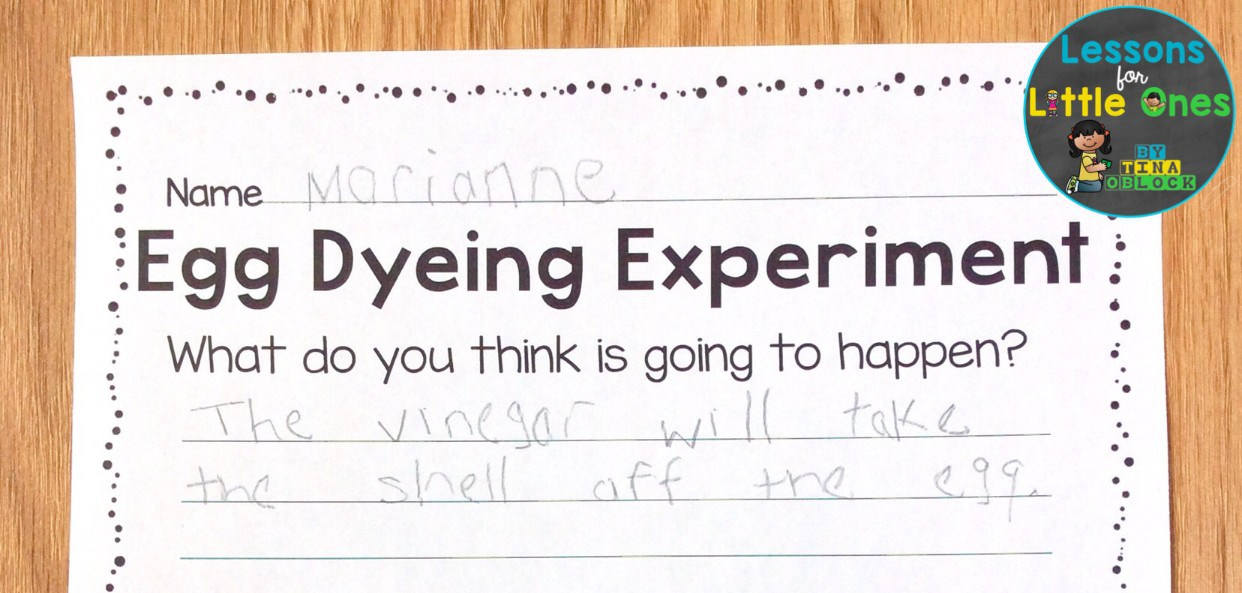 Lessons
for
Little Ones
BY
TINA
OBLOCK
Name Marianne
Egg Dyeing Experiment
What do you think is going to happen?
The vinegar will take
the shell off the egg.